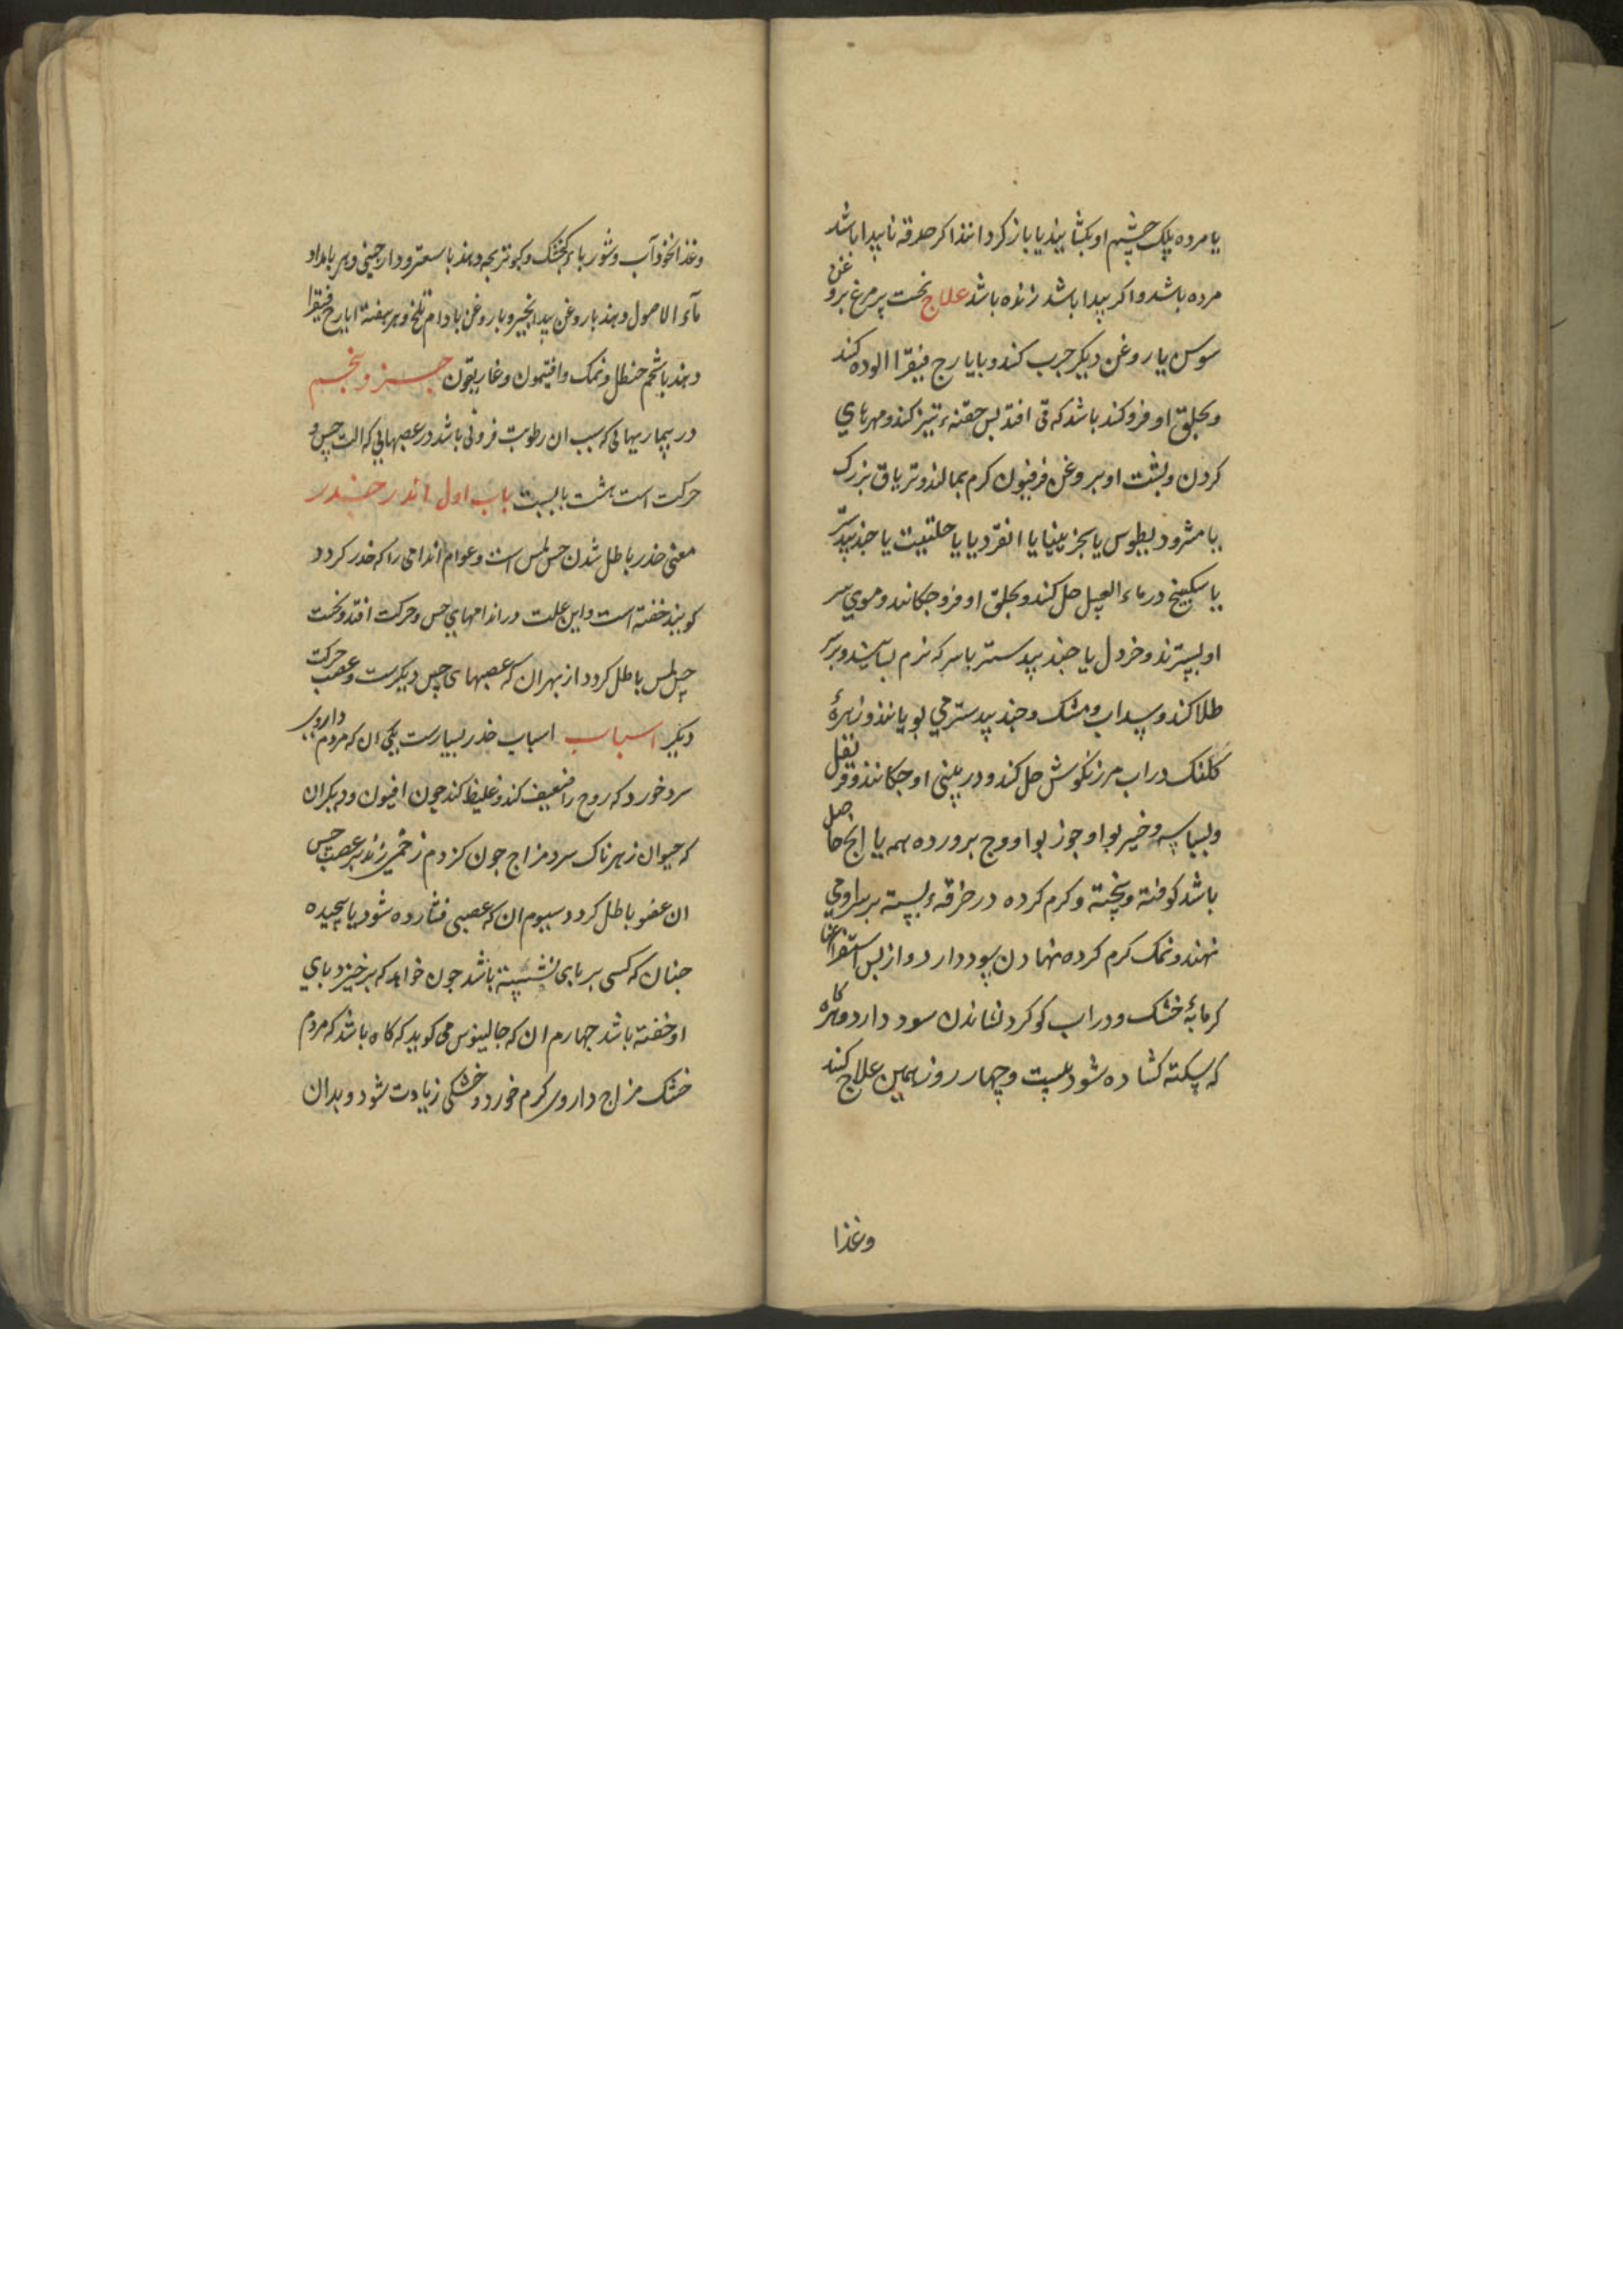 یا مرده پلک چشم او بکشایند یا باز کردانند اکر حدقه ناپیدا باشد
مرده باشد و اکر پیدا باشد زنده باشد علاج نخست پر مرغ بروغن
سوسن یا روغن دیکر جرب کند و بایارج فیقرا الوده کند
و بحلق او فرو کند باشد که قی افتد بس حقنهء تیز کند و مهرهای
کردن و بشت او بروغن فرفیون کرم بمالند و تریاق بزرک
یا مثرودیطوس یا سجزینیا یا انقردیا یا حلتیت یا جندبیدستر
یا سکبینج در ماء العسل حل کند و بحلق او فرو جکانند و موی سر
او بسترند و خردل یا جندبیدستر با سرکه نرم بسایند و بر سر
طلا کند و سداب و مشک و جندبیدستر می بویانند و زهرهٔ
کلنک در اب مرزنکوش حل کند و در بینی او جکانند و قرنفل
و بسباسه و خیربوا و جوزبوا و وج برورده همه یا انج حاصل
باشد کوفته و بیخته و کرم کرده در خرقهء بسته بر سر او می
نهند و نمک کرم کرده نهادن سود دارد و از بس استفراغها
کرمابهٔ خشک و در اب کوکرد نشاندن سود دارد و هرکاه
که سکته کشاده شود بیست و چهار روز همین علاج کند
وغذا
وغذا نخوداب و شورباء کنجشک و کبوتر بجه دهند با سعتر و دارجینی و هر بامداد
ماء الاصول دهند با روغن بیدانجیر و با روغن بادام تلخ و هر هفته ایارج فیقرا
دهند با شحم حنظل و نمک و افتیمون و غاریقون جزو پنجم
در بیماریهائی که سبب ان رطوبت فزونی باشد در عصبهایی که الت حس و
حرکت است هشت بابست باب اول اندر خدر
معنی خدر باطل شدن حس لمس است و عوام اندامی را که خدر کردد
کویند خفته است و این علت در اندامهای حس و حرکت افتد و نخست
حس لمس باطل کردد از بهر ان که عصبهای حس دیکرست و عصب حرکت
دیکر اسباب اسباب خدر بسیارست یکی ان که مردم داروی
سرد خورد که روح را ضعیف کند و غلیظ کند جون افیون و دیکر ان
که حیوان زهرناک سرد مزاج جون کزدم زخمی زند بر عصب حس
ان عضو باطل کردد سیوم ان که عصبی فشارده شود یا پیجیده
جنان که کسی بر بای نشسته باشد جون خواهد که برخیزد بای
او خفته باشد جهارم ان که جالینوس می کوید که کاه باشد که مردم
خشک مزاج داروی کرم خورد و خشکی زیادت شود و بدان